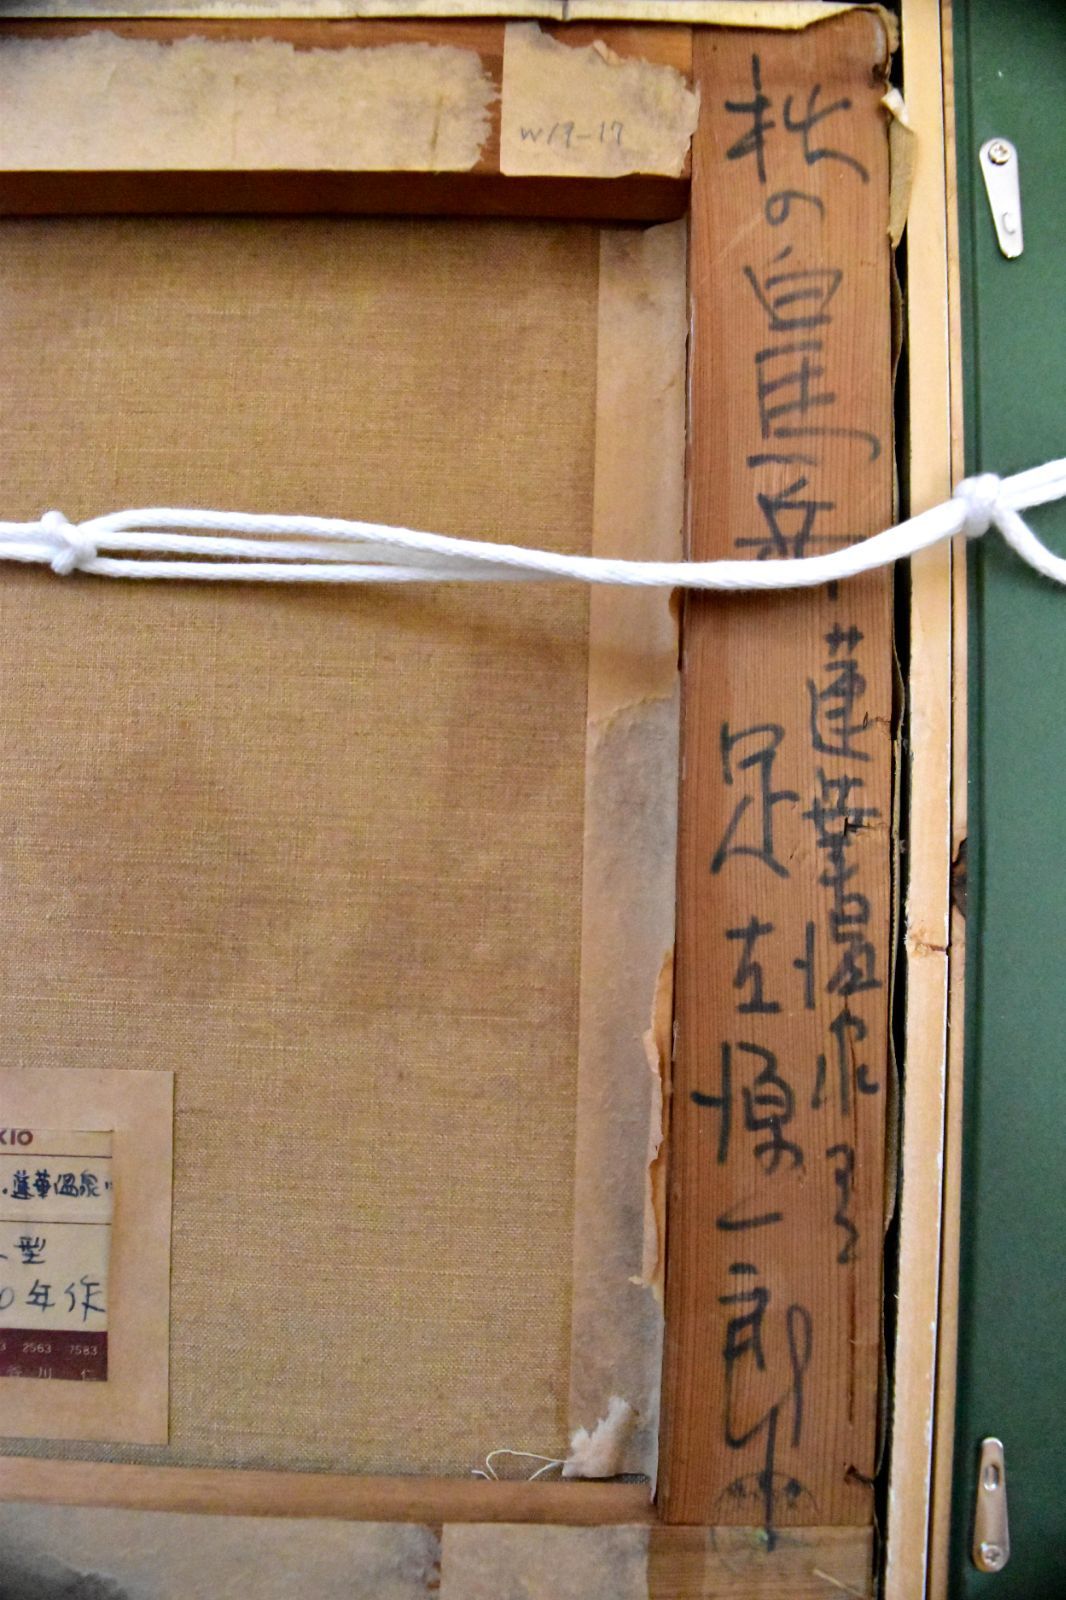 秋の白馬岳
蓮華温泉より
足立源一郎
W19-17
KIO
.蓮華温泉ﾘ
型
0年作
3 2563 7583
川 仁